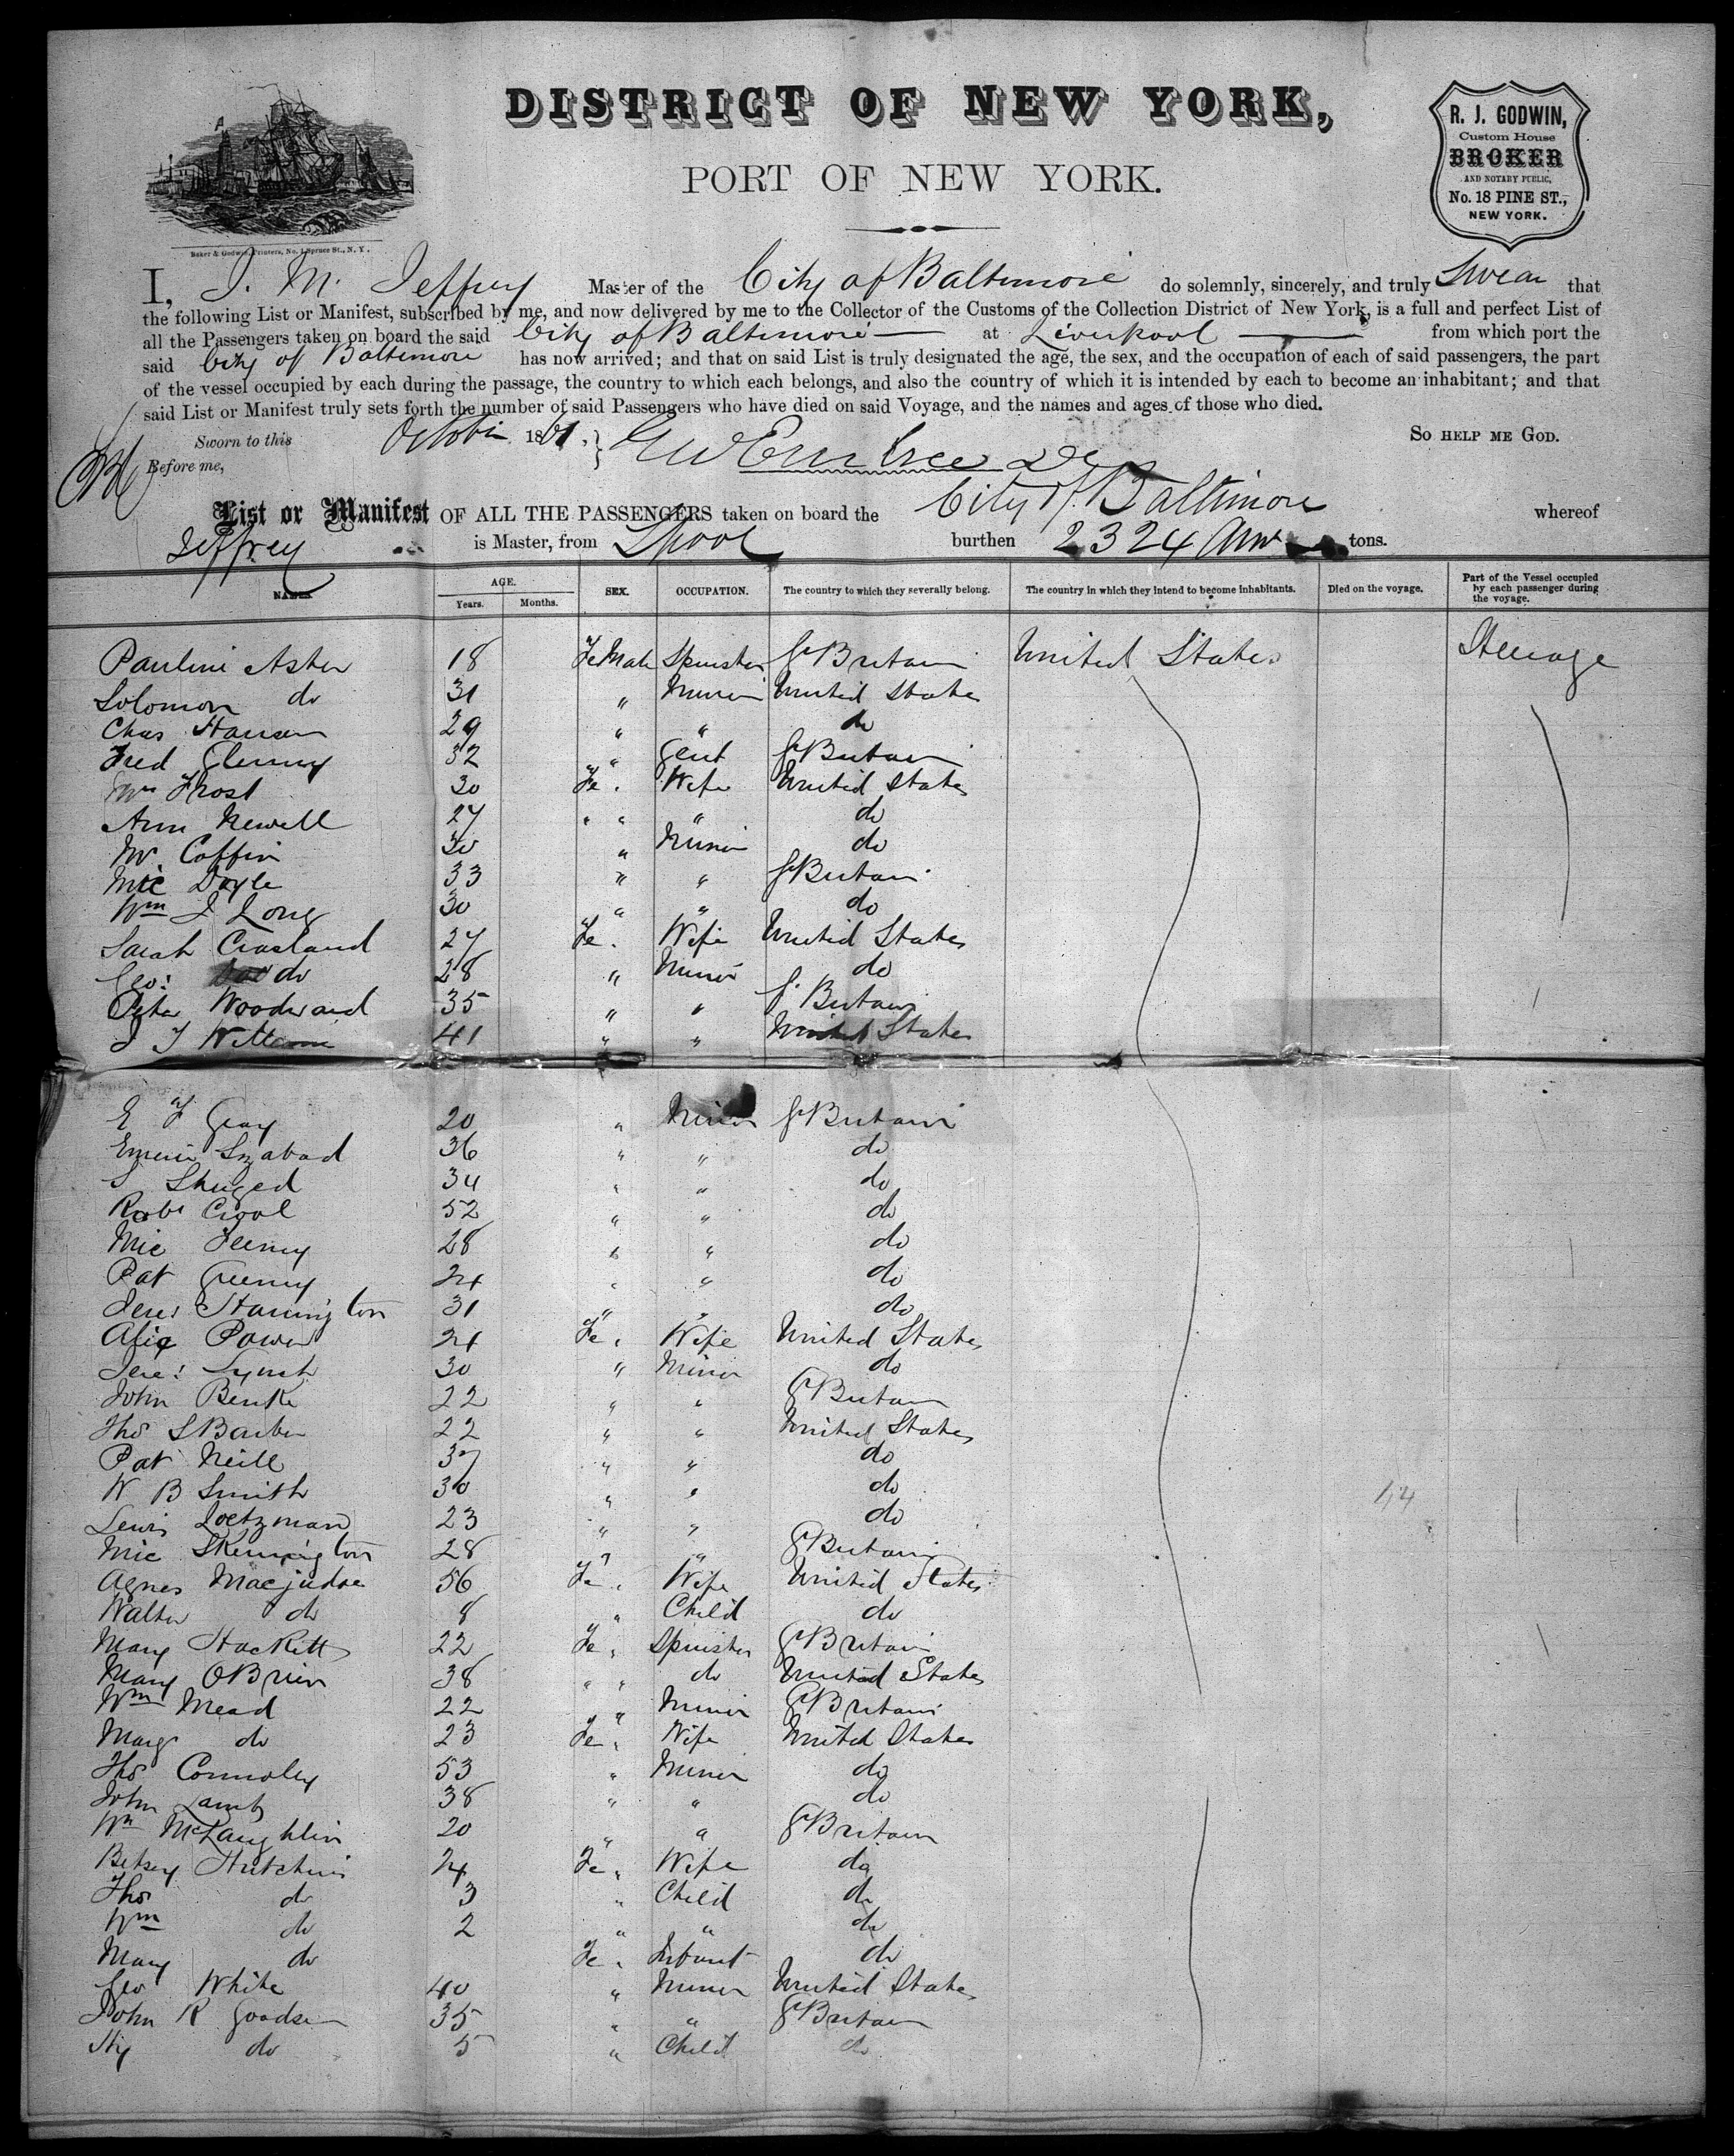 DISTRICT OF NEW YORK,
PORT OF NEW YORK.
R. J. GODWIN,
Custom House
BROKER
AND NOTARY PUBLIC,
No. 18 PINE ST.,
NEW YORK.
Baker & Godwin, Printers, No. 1 Spruce St., N. Y.
I, J. M. Jeffrey Master of the City of Baltimore do solemnly, sincerely, and truly Swear that
the following List or Manifest, subscribed by me, and now delivered by me to the Collector of the Customs of the Collection District of New York, is a full and perfect List of
all the Passengers taken on board the said City of Baltimore at Liverpool from which port the
said City of Baltimore has now arrived; and that on said List is truly designated the age, the sex, and the occupation of each of said passengers, the part
of the vessel occupied by each during the passage, the country to which each belongs, and also the country of which it is intended by each to become an inhabitant; and that
said List or Manifest truly sets forth the number of said Passengers who have died on said Voyage, and the names and ages of those who died.
Sworn to this October 1861. SO HELP ME GOD.
Before me,
List or Manifest OF ALL THE PASSENGERS taken on board the City of Baltimore whereof
Jeffrey is Master, from Lpool burthen 2324 tons.
NAMES AGE. Years. Months. SEX. OCCUPATION. The country to which they severally belong. The country in which they intend to become inhabitants. Died on the voyage. Part of the Vessel occupied by each passenger during the voyage.
Pauline Asher 18 FeMale Spinster Gt Britain United States Steerage
Solomon do 31 " Miner United States
Chas Hansen 29 " " do
Fred Glenny 32 " Gent Gt Britain
Mrs Frost 30 Fe " Wife United States
Ann Newell 27 " " " do
Mr Coffin 30 " Miner do
Mic Doyle 33 " " Gt Britain
Wm J Long 30 " " do
Sarah Crosland 27 Fe " Wife United States
Geo: do 28 " Miner do
Peter Woodward 35 " " Gt Britain
J T William 41 " " United States
E F Gray 20 " Miner Gt Britain
Szabad 36 " " do
S 34 " " do
Robt 52 " " do
Mic Feeny 28 " " do
Pat 24 " " do
Jere: Harrington 31 " " do
Alice Power 21 Fe " Wife United States
Jere: Lynch 30 " Miner do
John Benke 22 " " Gt Britain
Thos S Barber 22 " " United States
Pat Neill 37 " " do
W B Smith 30 " " do
Lewis Loetzman 23 " " do
Mic Skennington 28 " " Gt Britain
Agnes 56 Fe " Wife United States
Walter do 8 " Child do
Mary Hackett 22 Fe " Spinster Gt Britain
Mary OBrien 38 " " do United States
Wm Mead 22 " Miner Gt Britain
Marg do 23 Fe " Wife United States
Thos Connoley 53 " Miner do
John Lamb 38 " " do
Wm McLaughlin 20 " " Gt Britain
Betsey Hutchins 24 Fe " Wife do
Thos do 3 " Child do
Wm do 2 " " do
Mary do Fe " Infant do
Geo White 40 " Miner United States
John R Goodsen 35 " " Gt Britain
Hy do 5 " Child do